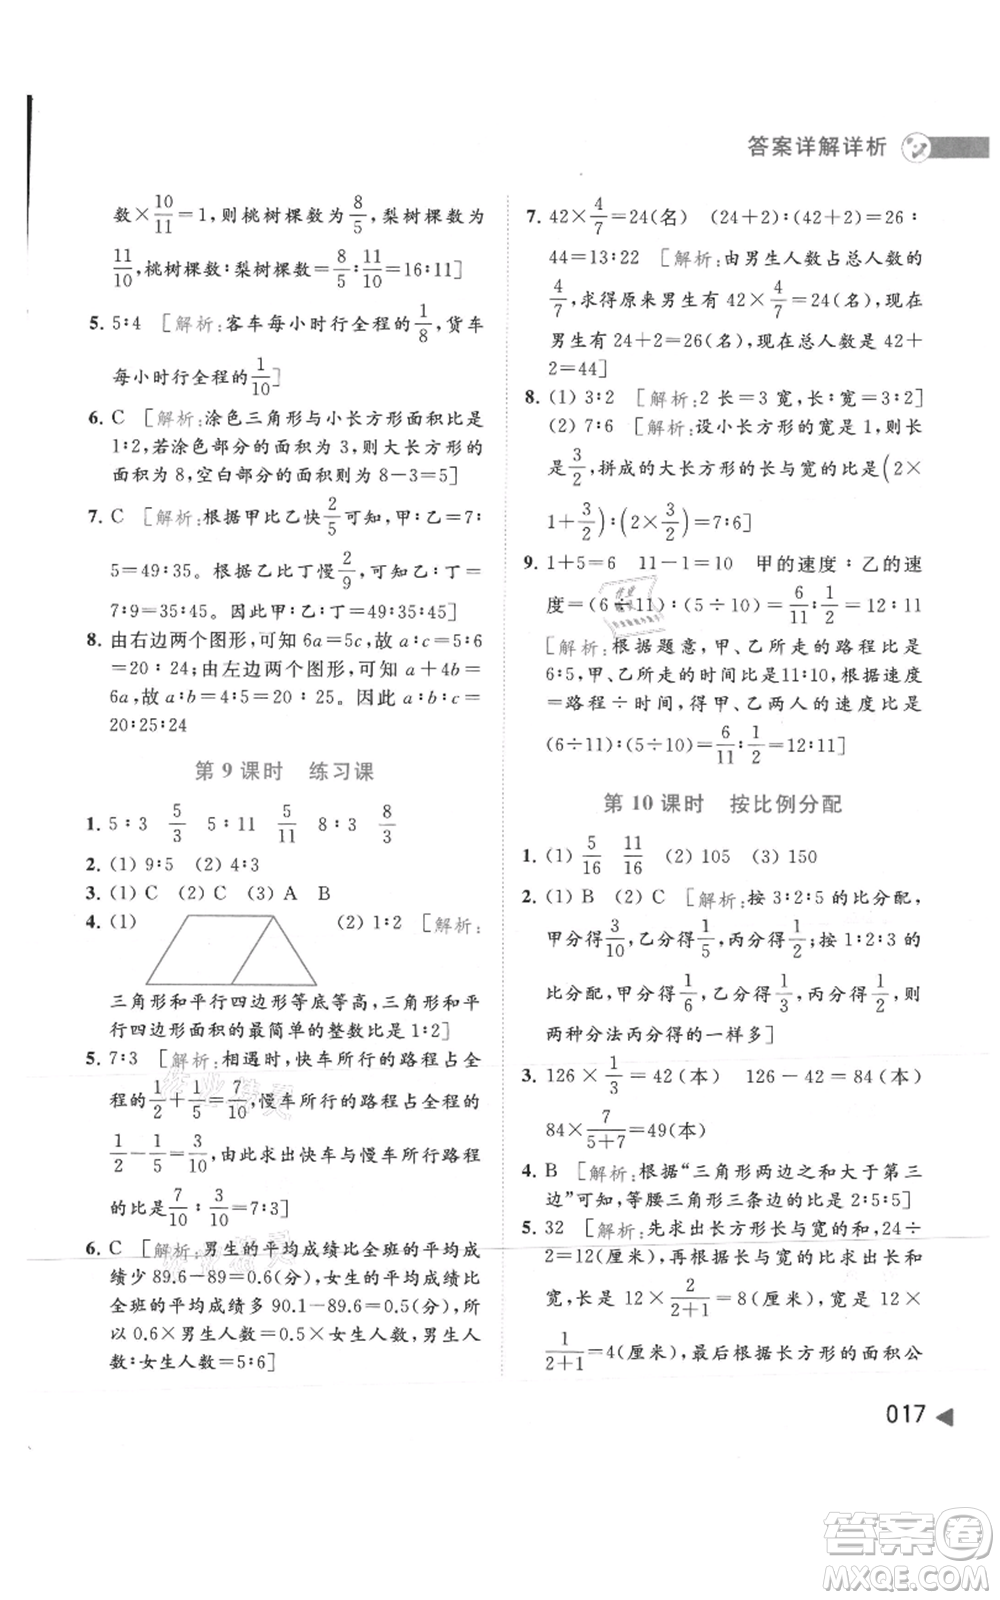 答案详解详析
数×10/11=1,则桃树棵数为8/5,梨树棵数为
11/10,桃树棵数∶梨树棵数=8/5∶11/10=16∶11]
5. 5∶4 [解析:客车每小时行全程的1/8,货车
每小时行全程的1/10]
6. C [解析:涂色三角形与小长方形面积比是
1∶2,若涂色部分的面积为3,则大长方形的
面积为8,空白部分的面积则为8-3=5]
7. C [解析:根据甲比乙快2/5可知,甲∶乙=7∶
5=49∶35。根据乙比丁慢2/9可知,乙∶丁=
7∶9=35∶45。因此甲∶乙∶丁=49∶35∶45]
8. 由右边两个图形,可知6a=5c,故a∶c=5∶6
=20∶24;由左边两个图形,可知a+4b=
6a,故a∶b=4∶5=20∶25。因此a∶b∶c=
20∶25∶24
第9课时 练习课
1. 5∶3 5/3 5∶11 5/11 8∶3 8/3
2. (1) 9∶5 (2) 4∶3
3. (1) C (2) C (3) A B
4. (1) (2) 1∶2 [解析:
三角形和平行四边形等底等高,三角形和平
行四边形面积的最简单的整数比是1∶2]
5. 7∶3 [解析:相遇时,快车所行的路程占全
程的1/2+1/5=7/10,慢车所行的路程占全程的
1/2-1/5=3/10,由此求出快车与慢车所行路程
的比是7/10∶3/10=7∶3]
6. C [解析:男生的平均成绩比全班的平均成
绩少89.6-89=0.6(分),女生的平均成绩比
全班的平均成绩多90.1-89.6=0.5(分),所
以0.6×男生人数=0.5×女生人数,男生人
数∶女生人数=5∶6]
7. 42×4/7=24(名) (24+2)∶(42+2)=26∶
44=13∶22 [解析:由男生人数占总人数的
4/7,求得原来男生有42×4/7=24(名),现在
男生有24+2=26(名),现在总人数是42+
2=44]
8. (1) 3∶2 [解析:2长=3宽,长∶宽=3∶2]
(2) 7∶6 [解析:设小长方形的宽是1,则长
是3/2,拼成的大长方形的长与宽的比是(2×
1+3/2)∶(2×3/2)=7∶6]
9. 1+5=6 11-1=10 甲的速度∶乙的速
度=(6÷11)∶(5÷10)=6/11∶1/2=12∶11
[解析:根据题意,甲、乙所走的路程比是
6∶5,甲、乙所走的时间比是11∶10,根据速度
=路程÷时间,得甲、乙两人的速度比是
(6÷11)∶(5÷10)=6/11∶1/2=12∶11]
第10课时 按比例分配
1. (1) 5/16 11/16 (2) 105 (3) 150
2. (1) B (2) C [解析:按3∶2∶5的比分配,
甲分得3/10,乙分得1/5,丙分得1/2;按1∶2∶3的
比分配,甲分得1/6,乙分得1/3,丙分得1/2,则
两种分法丙分得的一样多]
3. 126×1/3=42(本) 126-42=84(本)
84×7/(5+7)=49(本)
4. B [解析:根据“三角形两边之和大于第三
边”可知,等腰三角形三条边的比是2∶5∶5]
5. 32 [解析:先求出长方形长与宽的和,24÷
2=12(厘米),再根据长与宽的比求出长和
宽,长是12×2/(2+1)=8(厘米),宽是12×
1/(2+1)=4(厘米),最后根据长方形的面积公
017
答案圈
MXQE.COM